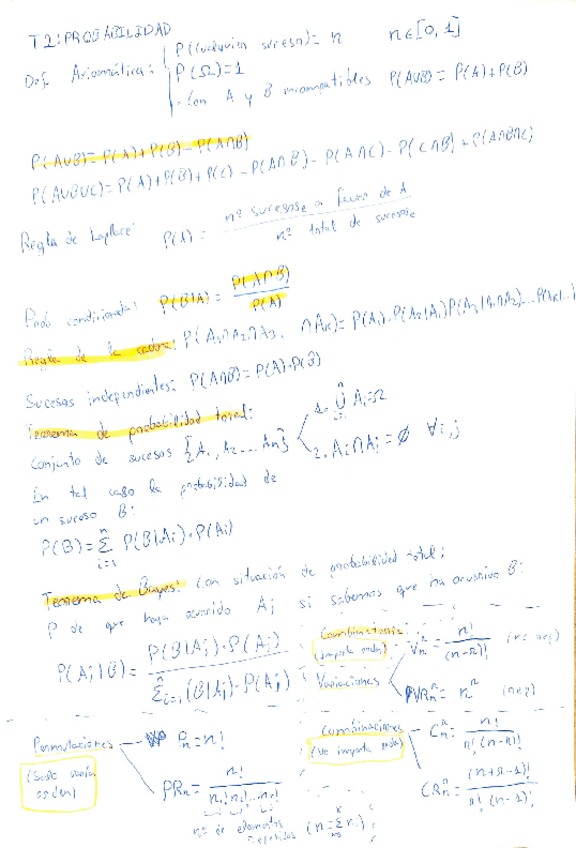 T2: PROBABILIDAD
Def. Axiomática: P(cualquier suceso) = n n∈[0,1]
P(Ω)=1
Con A y B incompatibles P(A∪B) = P(A)+P(B)
P(A∪B) = P(A)+P(B)-P(A∩B)
P(A∪B∪C) = P(A)+P(B)+P(C) - P(A∩B) - P(A∩C) - P(C∩B) + P(A∩B∩C)
Regla de Laplace: P(A) = nº sucesos a favor de A / nº total de sucesos
Prob condicionada: P(B|A) = P(A∩B) / P(A)
Regla de la cadena: P(A₁∩A₂∩A₃. ∩Aₖ) = P(A₁)·P(A₂|A₁)P(A₃|A₁∩A₂)...
Sucesos independientes: P(A∩B)=P(A)·P(B)
Teorema de probabilidad total:
Conjunto de sucesos {A₁, A₂ .... Aₙ} 1. ⋃ⁿᵢ₌₁ Aᵢ=Ω
2. Aᵢ∩Aⱼ = ∅ ∀i,j
En tal caso la probabilidad de
un suceso B:
P(B) = Σⁿᵢ₌₁ P(B|Aᵢ)·P(Aᵢ)
Teorema de Bayes: Con situación de probabilidad total;
P de que haya ocurrido Aⱼ si sabemos que ha ocurrido B:
P(Aⱼ|B) = P(B|Aⱼ)·P(Aⱼ) / Σⁿᵢ₌₁ (B|Aᵢ)·P(Aᵢ)
Combinatoria:
(importa orden)
Variaciones
n! / (n-r)!
Permutaciones Pₙ=n!
(Solo varía
orden)
PRₙ = n! / n₁!n₂!...nᵢ!
nº de elementos
repetidos
Combinaciones
(No importa orden)